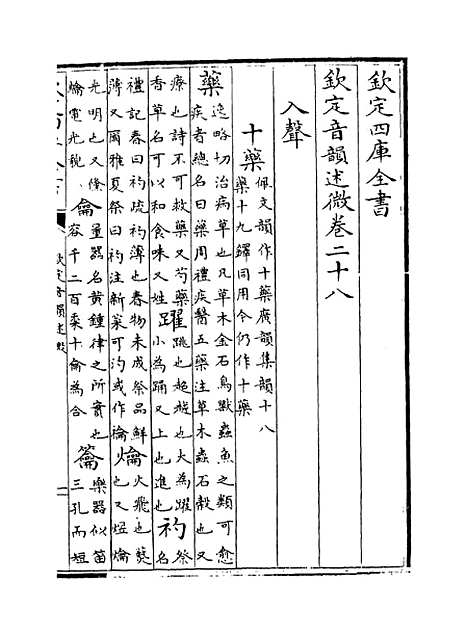 欽定四庫全書
欽定音韻述微卷二十八
入聲
十藥佩文韻作十藥廣韻集韻十八
藥十九鐸同用今仍作十藥
藥逸略切治病草也凡草木金石鳥獸蟲魚之類可愈
疾者總名曰藥周禮疾醫五藥注草木蟲石穀也又
療也詩不可救藥又芍藥
香草名可以和食味又姓躍跳也趒越也大為躍
小為踊又上也進也礿祭
名
禮記春曰礿疏礿薄也春物未成祭品鮮
薄又爾雅夏祭曰礿注新菜可汋或作禴爚火飛也爇
也又熠爚
光明也又倏
爚電光貌龠量器名黃鍾律之所實也
容千二百黍十龠為合籥樂器似笛
三孔而短